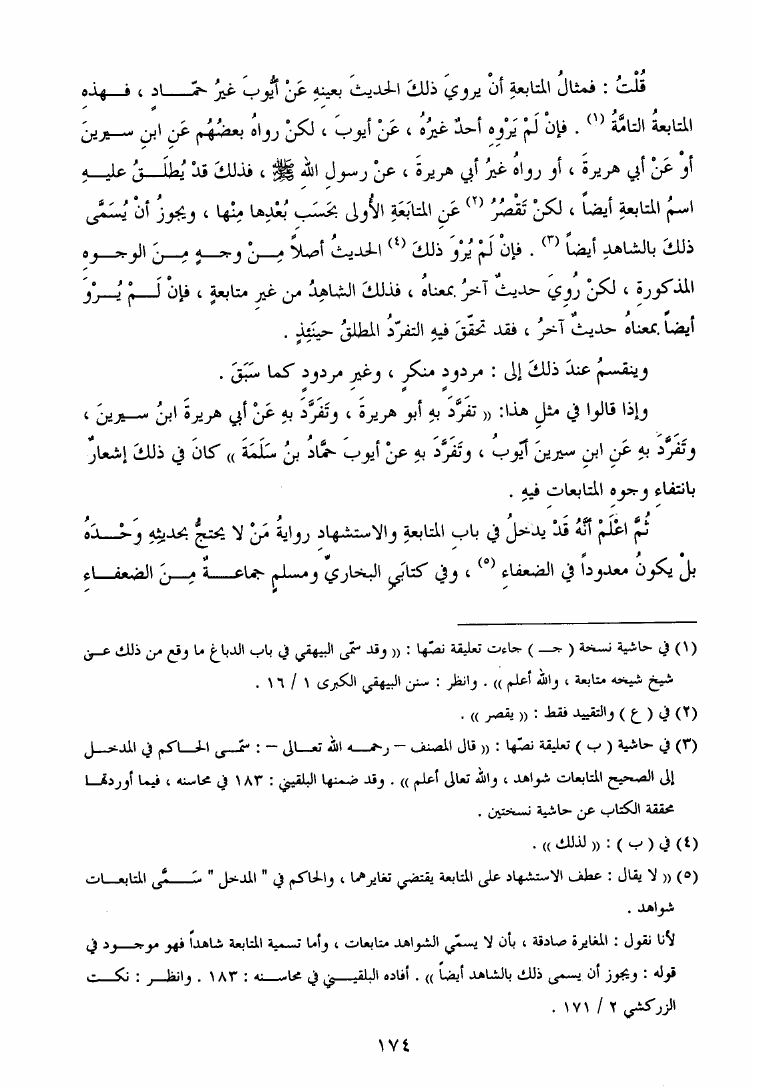 قُلْتُ : فمثالُ المتابعةِ أنْ يرويَ ذلكَ الحديثَ بعينِهِ عَنْ أيُّوبَ غيرُ حمَّـــادٍ ، فــهذهِ
المتابعةُ التامَّةُ (١) . فإنْ لَمْ يَرْوِهِ أحدٌ غيرُهُ ، عَنْ أيوبَ ، لكنْ رواهُ بعضُهُم عَنِ ابنِ سـيرينَ
أوْ عَنْ أبي هريرةَ ، أو رواهُ غيرُ أبي هريرةَ ، عنْ رسولِ اللهِ ﷺ ، فذلكَ قدْ يُطلَــقُ عليــهِ
اسمُ المتابعةِ أيضاً ، لكنْ تَقْصُرُ (٢) عَنِ المتابَعَةِ الأُولى بحَسَبِ بُعْدِها مِنْها ، ويجوزُ أنْ يُسَمَّى
ذلكَ بالشاهدِ أيضاً (٣) . فإنْ لَمْ يُرْوَ ذلكَ (٤) الحديثُ أصلاً مِــنْ وجــهٍ مِــنَ الوجــوهِ
المذكورةِ ، لكنْ رُوِيَ حديثٌ آخرُ بمعناهُ ، فذلكَ الشاهِدُ من غيرِ متابعةٍ ، فإنْ لَــمْ يُــرْوَ
أيضاً بمعناهُ حديثٌ آخرُ ، فقد تحقّقَ فيهِ التفرّدُ المطلقُ حينَئِذٍ .
وينقسمُ عندَ ذلكَ إلى : مردودٍ منكرٍ ، وغيرِ مردودٍ كما سَبَقَ .
وإذا قالوا في مثلِ هذا: (( تفرَّدَ بهِ أبو هريرةَ ، وتَفَرَّدَ بهِ عَنْ أبي هريرةَ ابنُ سـيرينَ ،
وتَفَرَّدَ بهِ عَنِ ابنِ سيرينَ أيّوبُ ، وتَفَرَّدَ بهِ عنْ أيوبَ حمَّادُ بنُ سَلَمَةَ )) كانَ في ذلكَ إشعارٌ
بانتفاءِ وجوهِ المتابعاتِ فيهِ .
ثُمَّ اعْلَمْ أنَّهُ قَدْ يدخلُ في بابِ المتابعةِ والاستشهادِ روايةُ مَنْ لا يحتجُّ بحديثِهِ وَحْــدَهُ
بلْ يكونُ معدوداً في الضعفاءِ (٥) ، وفي كتابَي البخاريِّ ومسلمٍ جماعــةٌ مِــنَ الضعفــاءِ
(١) في حاشية نسخة ( جـ ) جاءت تعليقة نصّها : (( وقد سمّى البيهقي في باب الدباغ ما وقع من ذلك عــن
شيخ شيخه متابعة ، والله أعلم )) . وانظر : سنن البيهقي الكبرى ١ / ١٦ .
(٢) في ( ع ) والتقييد فقط : (( يقصر )) .
(٣) في حاشية ( ب ) تعليقة نصّها : (( قال المصنف – رحمــه الله تعــالى – : سمّــى الحــاكم في المدخــل
إلى الصحيح المتابعات شواهد ، والله تعالى أعلم )) . وقد ضمنها البلقيني : ١٨٣ في محاسنه ، فيما أوردتهــا
محققة الكتاب عن حاشية نسختين .
(٤) في ( ب ) : (( لذلك )) .
(٥) (( لا يقال : عطف الاستشهاد على المتابعة يقتضي تغايرهما ، والحاكم في " المدخل " سَــمَّى المتابعــات
شواهد .
لأنا نقول : المغايرة صادقة ، بأن لا يسمّي الشواهد متابعات ، وأما تسمية المتابعة شاهداً فهو موجــود في
قوله : ويجوز أن يسمى ذلك بالشاهد أيضاً )) . أفاده البلقيــني في محاســنه : ١٨٣ . وانظــر : نكــت
الزركشي ٢ / ١٧١ .
١٧٤